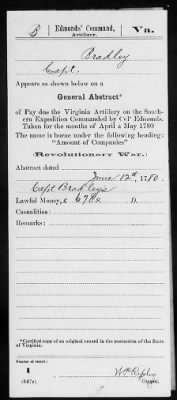 B | Edmonds' Command, | Va.
Artillery.
Bradley
Capt.
Appears as shown below on a
General Abstract*
of Pay due the Virginia Artillery on the South-
ern Expedition Commanded by Col° Edmonds.
Taken for the months of April & May 1780
The name is borne under the following heading:
"Amount of Companies"
Revolutionary War.
Abstract dated June 12th, 1780.
Capt Bradley's
Lawful Money, £ D.
Casualties:
Remarks:
*Certified copy of an original record in the possession of the State
of Virginia.
Number of record:
1
Wm Ripley
Copyist.